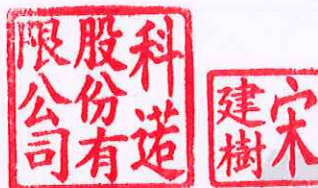 科诺
股份有
限公司
宋
建樹